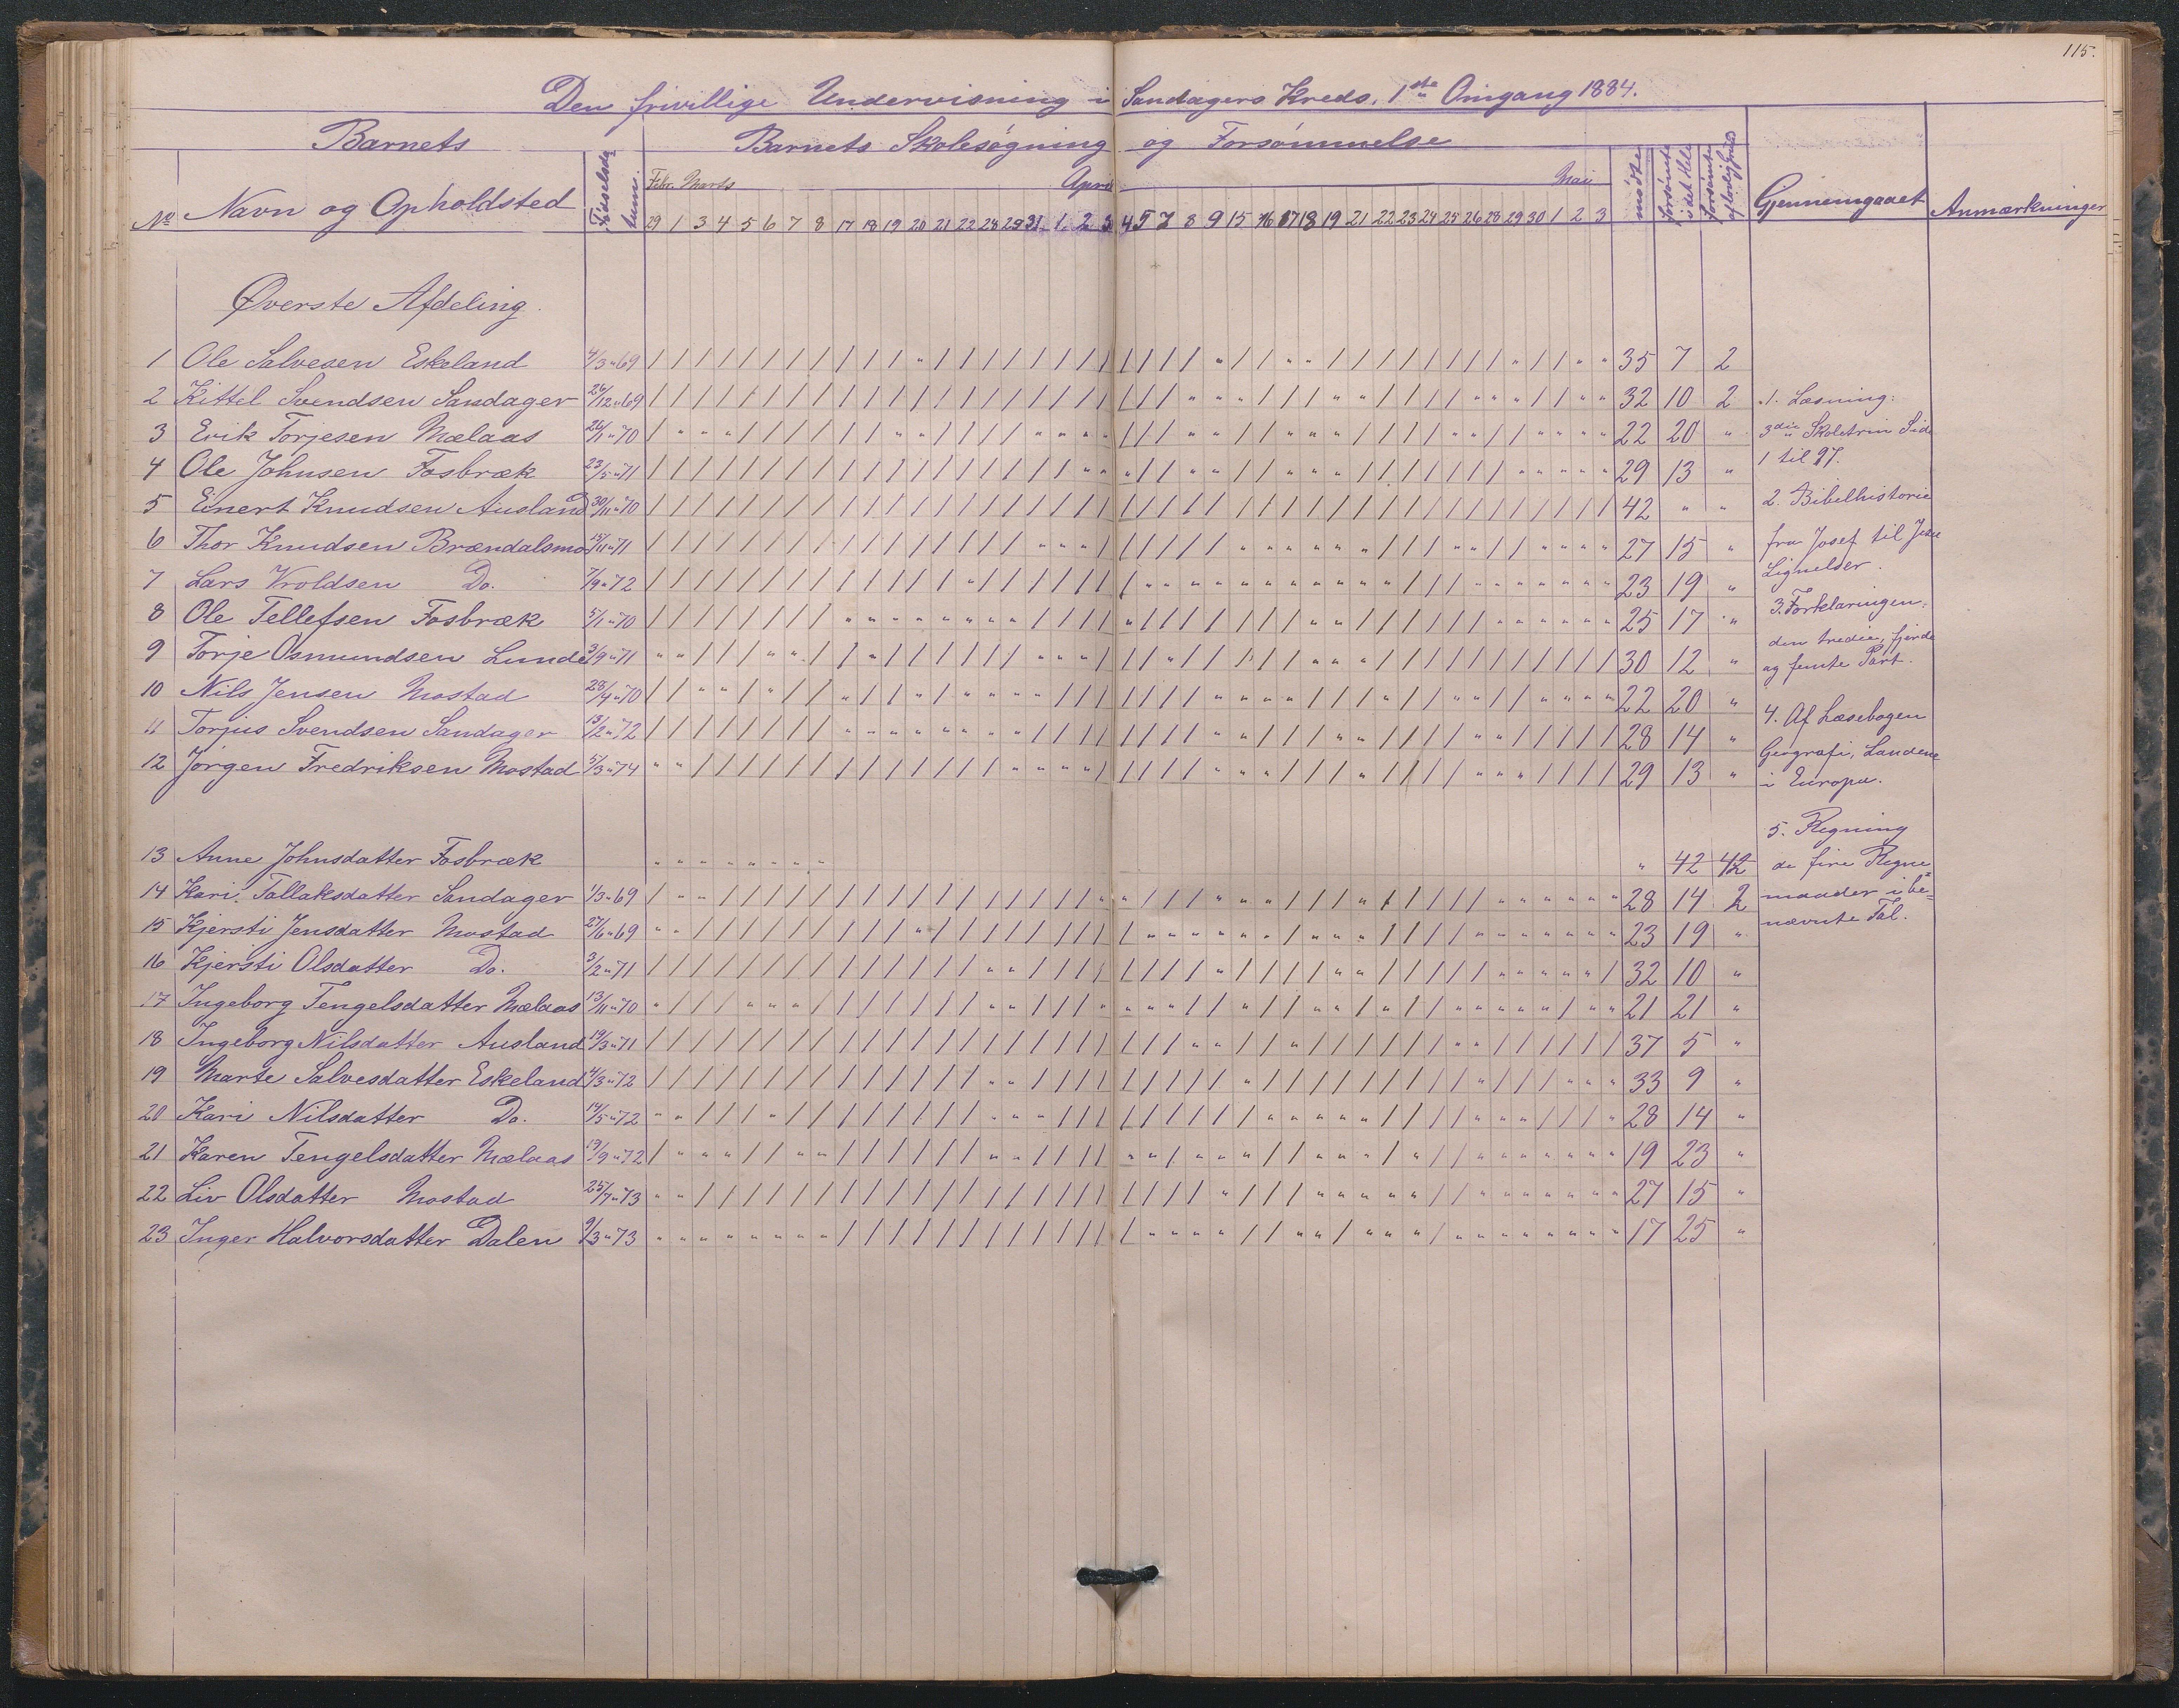 115.
Den frivillige Undervisning i Sandagers Kreds, 1ste Omgang 1884.
Barnets Barnets Skolesøgning og Forsømmelse
No Navn og Opholdsted Fødselsdatum. Febr. Marts April Mai mødte forsømte i det Hele forsømte af lovlig Gjennemgaaet Anmærkninger
29 1 3 4 5 6 7 8 17 18 19 20 21 22 28 29 31 1 2 3 4 5 7 8 9 15 16 17 18 19 21 22 23 24 25 26 28 29 30 1 2 3
Øverste Afdeling.
1 Ole Salvesen Eskeland 4/3 " 69 35 7 2
2 Kittel Svendsen Sandager 26/12 " 69 32 10 2
3 Erik Torjesen Mælaas 26/1 " 70 22 20 "
4 Ole Johnsen Fosbræk 23/5 " 71 29 13 "
5 Einert Knudsen Ausland 30/11 " 70 42 " "
6 Thor Knudsen Brændalsmo 15/11 " 71 27 15 "
7 Lars Vroldsen Do. 7/9 " 72 23 19 "
8 Ole Tellefsen Fosbræk 5/1 " 70 25 17 "
9 Torje Osmundsen Lunde 3/9 " 71 30 12 "
10 Nils Jensen Mostad 28/4 " 70 22 20 "
11 Torjus Svendsen Sandager 13/2 " 72 28 14 "
12 Jørgen Fredriksen Mostad 5/3 " 74 29 13 "
13 Anne Johnsdatter Fosbræk " 42 42
14 Kari Tallaksdatter Sandager 1/3 " 69 28 14 2
15 Kjersti Jensdatter Mostad 27/6 " 69 23 19 "
16 Kjersti Olsdatter Do. 3/2 " 71 32 10 "
17 Ingeborg Tengelsdatter Mælaas 13/11 " 70 21 21 "
18 Ingeborg Nilsdatter Ausland 19/3 " 71 37 5 "
19 Marte Salvesdatter Eskeland 4/3 " 72 33 9 "
20 Kari Nilsdatter Do. 14/5 " 72 28 14 "
21 Karen Tengelsdatter Mælaas 19/9 " 72 19 23 "
22 Liv Olsdatter Mostad 25/7 " 73 27 15 "
23 Inger Halvorsdatter Dalen 9/3 " 73 17 25 "
1. Læsning:
3die Skoletrin Side
1 til 97.
2. Bibelhistorie
fra Josef til Jesu
Lignelser.
3. Forklaringen:
den tredie, fjerde
og femte Part.
4. Af Læsebogen
Geografi, Landene
i Europa.
5. Regning
de fire Regne
maader i be=
nævnte Tal.